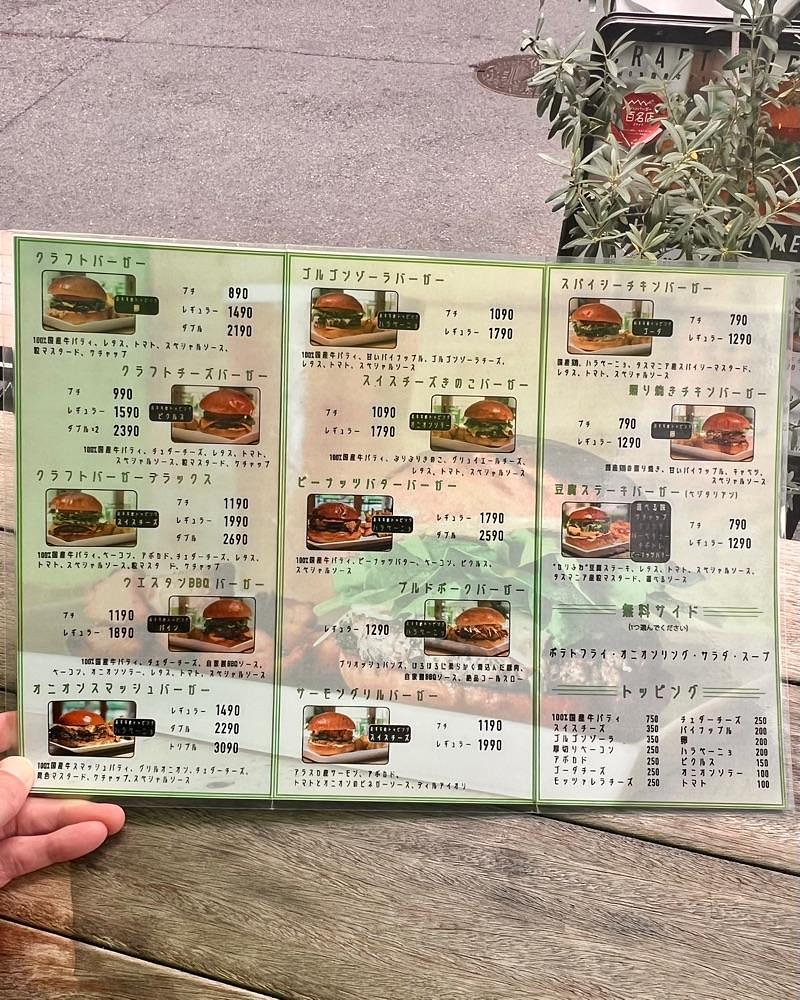 CRAFT
百名店
クラフトバーガー
プチ 890
レギュラー 1490
ダブル 2190
100%国産牛パティ、レタス、トマト、スペシャルソース、
粒マスタード、ケチャップ
クラフトチーズバーガー
プチ 990
レギュラー 1590
ダブル×2 2390
ピクルス
100%国産牛パティ、チェダーチーズ、レタス、トマト、
スペシャルソース、粒マスタード、ケチャップ
クラフトバーガーデラックス
プチ 1190
レギュラー 1990
ダブル 2690
スイスチーズ
100%国産牛パティ、ベーコン、アボカド、チェダーチーズ、レタス、
トマト、スペシャルソース、粒マスタード、ケチャップ
ウエスタンBBQバーガー
プチ 1190
レギュラー 1890
パイン
100%国産牛パティ、チェダーチーズ、自家製BBQソース、
ベーコン、オニオンソテー、レタス、トマト、スペシャルソース
オニオンスマッシュバーガー
レギュラー 1490
ダブル 2290
トリプル 3090
ハラペーニョ
100%国産牛スマッシュパティ、グリルオニオン、チェダーチーズ、
黄色マスタード、ケチャップ、スペシャルソース
ゴルゴンゾーラバーガー
プチ 1090
レギュラー 1790
ハラペーニョ
100%国産牛パティ、甘いパイナップル、ゴルゴンゾーラチーズ、
レタス、トマト、スペシャルソース
スイスチーズきのこバーガー
プチ 1090
レギュラー 1790
オニオンソテー
100%国産牛パティ、ぷりぷりきのこ、グリュイエールチーズ、
レタス、トマト、スペシャルソース
ピーナッツバターバーガー
レギュラー 1790
ダブル 2590
ハラペーニョ
100%国産牛パティ、ピーナッツバター、ベーコン、ピクルス、
スペシャルソース
プルドポークバーガー
レギュラー 1290
ハラペーニョ
ブリオッシュバンズ、ほろほろに柔らかく煮込んだ豚肉、
自家製BBQソース、絶品コールスロー
サーモングリルバーガー
プチ 1190
レギュラー 1990
スイスチーズ
アラスカ産サーモン、アボカド、
トマトとオニオンのビネガーソース、ディルアイオリ
スパイシーチキンバーガー
プチ 790
レギュラー 1290
ゴーダ
国産鶏、ハラペーニョ、タスマニア産スパイシーマスタード、
レタス、トマト、スペシャルソース
照り焼きチキンバーガー
プチ 790
レギュラー 1290
卵
国産鶏の照り焼き、甘いパイナップル、キャベツ、
スペシャルソース
豆腐ステーキバーガー(ベジタリアン)
プチ 790
レギュラー 1290
選べる味
"カリふわ"豆腐ステーキ、レタス、トマト、スペシャルソース、
タスマニア産粒マスタード、選べるソース
無料サイド
(1つ選んでください)
ポテトフライ・オニオンリング・サラダ・スープ
トッピング
100%国産牛パティ 750
スイスチーズ 350
ゴルゴンゾーラ 350
厚切りベーコン 250
アボカド 250
ゴーダチーズ 250
モッツァレラチーズ 250
チェダーチーズ 250
パイナップル 200
卵 200
ハラペーニョ 200
ピクルス 150
オニオンソテー 100
トマト 100